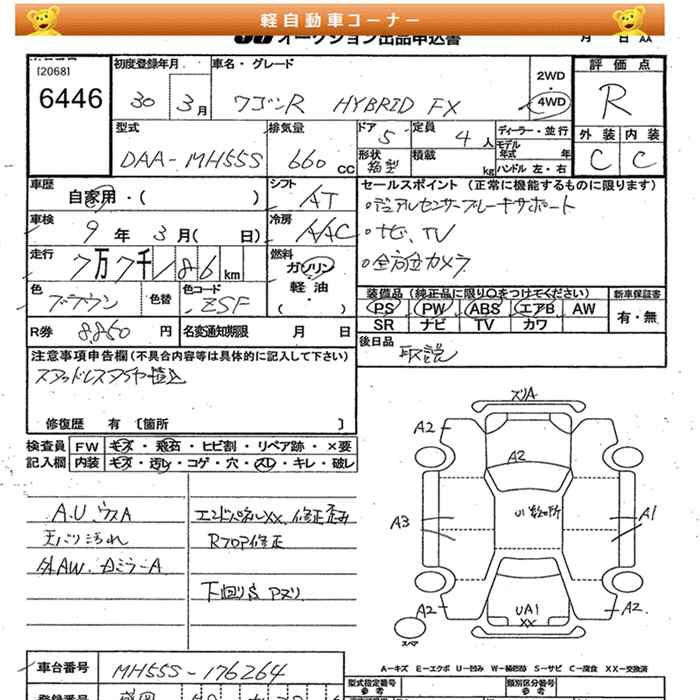 軽自動車コーナー
オークション出品申込書
月 日 AA
[2068]
6446
初度登録年月
30 3月
車名・グレード
ワゴンR HYBRID FX
2WD
・
4WD
評価点
R
外装 内装
C C
型式
DAA-MH55S
排気量
660 CC
ドア
5
定員
4 人
形状
箱型
積載
kg
ディーラー・並行
モデル年式 年
ハンドル 左・右
車歴
自家用・( )
シフト
AT
車検
9年 3月( 日)
冷房
AAC
走行
7万7千186km
燃料
ガソリン
軽油
・
( )
色
ブラウン
色替
色コード
ZSF
R券 8,860 円
名変通知期限 月 日
セールスポイント (正常に機能するものに限ります)
・デュアルセンサーブレーキサポート
・ナビ、TV
・全方位カメラ
装備品(純正品に限り○をつけてください)
PS PW ABS エアB AW
SR ナビ TV カワ
新車保証書
有・無
後日品
取説
注意事項申告欄(不具合内容等は具体的に記入して下さい)
スタッドレスタイヤ積込
修復歴 有 〔箇所 〕
検査員
記入欄
FW キズ・飛石・ヒビ割・リペア跡・×要
内装 キズ・汚レ・コゲ・穴・スレ・キレ・破レ
A.U.ウスA
天バリ汚れ
外AW、ミラーA
エンドパネルXX、修正歪み
Rフロア修正
下回りS アズリ
ズリA
A2
A2
U1数ヵ所
A3
A1
UA1
XX
A2
A2
スペア
A-キズ E-エクボ U-凹み W-補修跡 S-サビ C-腐食 XX-交換済
車台番号 MH55S-176264
型式指定番号
参考
類別区分番号
参考
登録番号 盛岡